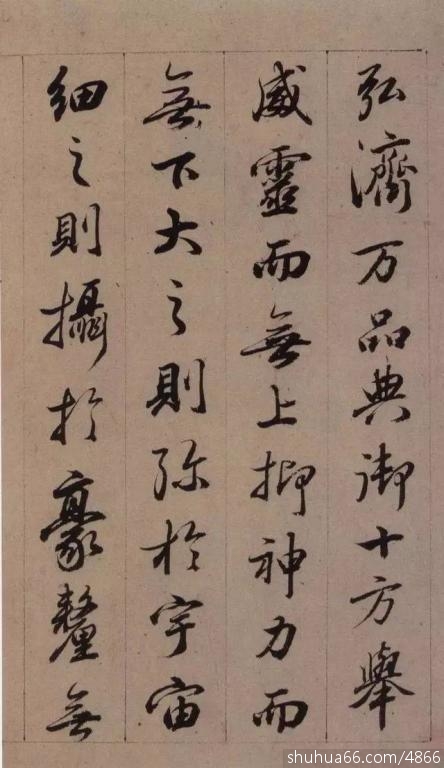 弘濟万品典御十方舉
威靈而無上抑神力而
無下大之則弥於宇宙
細之則攝於豪釐無
shuhua66.com/4866